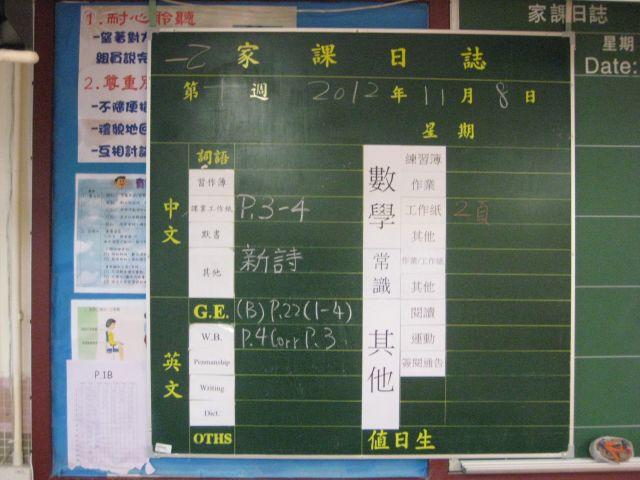 1.耐心聆聽
-望著對方
組員說完
2.尊重別
-不隨便
-禮貌地回
-互相討論
P.1B
一乙 家課日誌
第十週 2012年11月8日
星期
中文
詞語
習作簿
課業工作紙 P.3-4
默書
其他 新詩
英文
G.E. (B) P.22(1-4)
W.B. P.4 Corr P.3
Penmanship
Writing
Dict.
OTHS
數學
練習簿
作業
工作紙 2頁
其他
常識
作業/工作紙
其他
其他
閱讀
運動
簽閱通告
值日生
家課日誌
星期
Date: